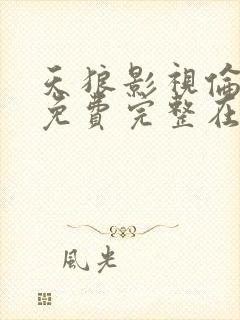 天狼影視倫
免費完整在
風光